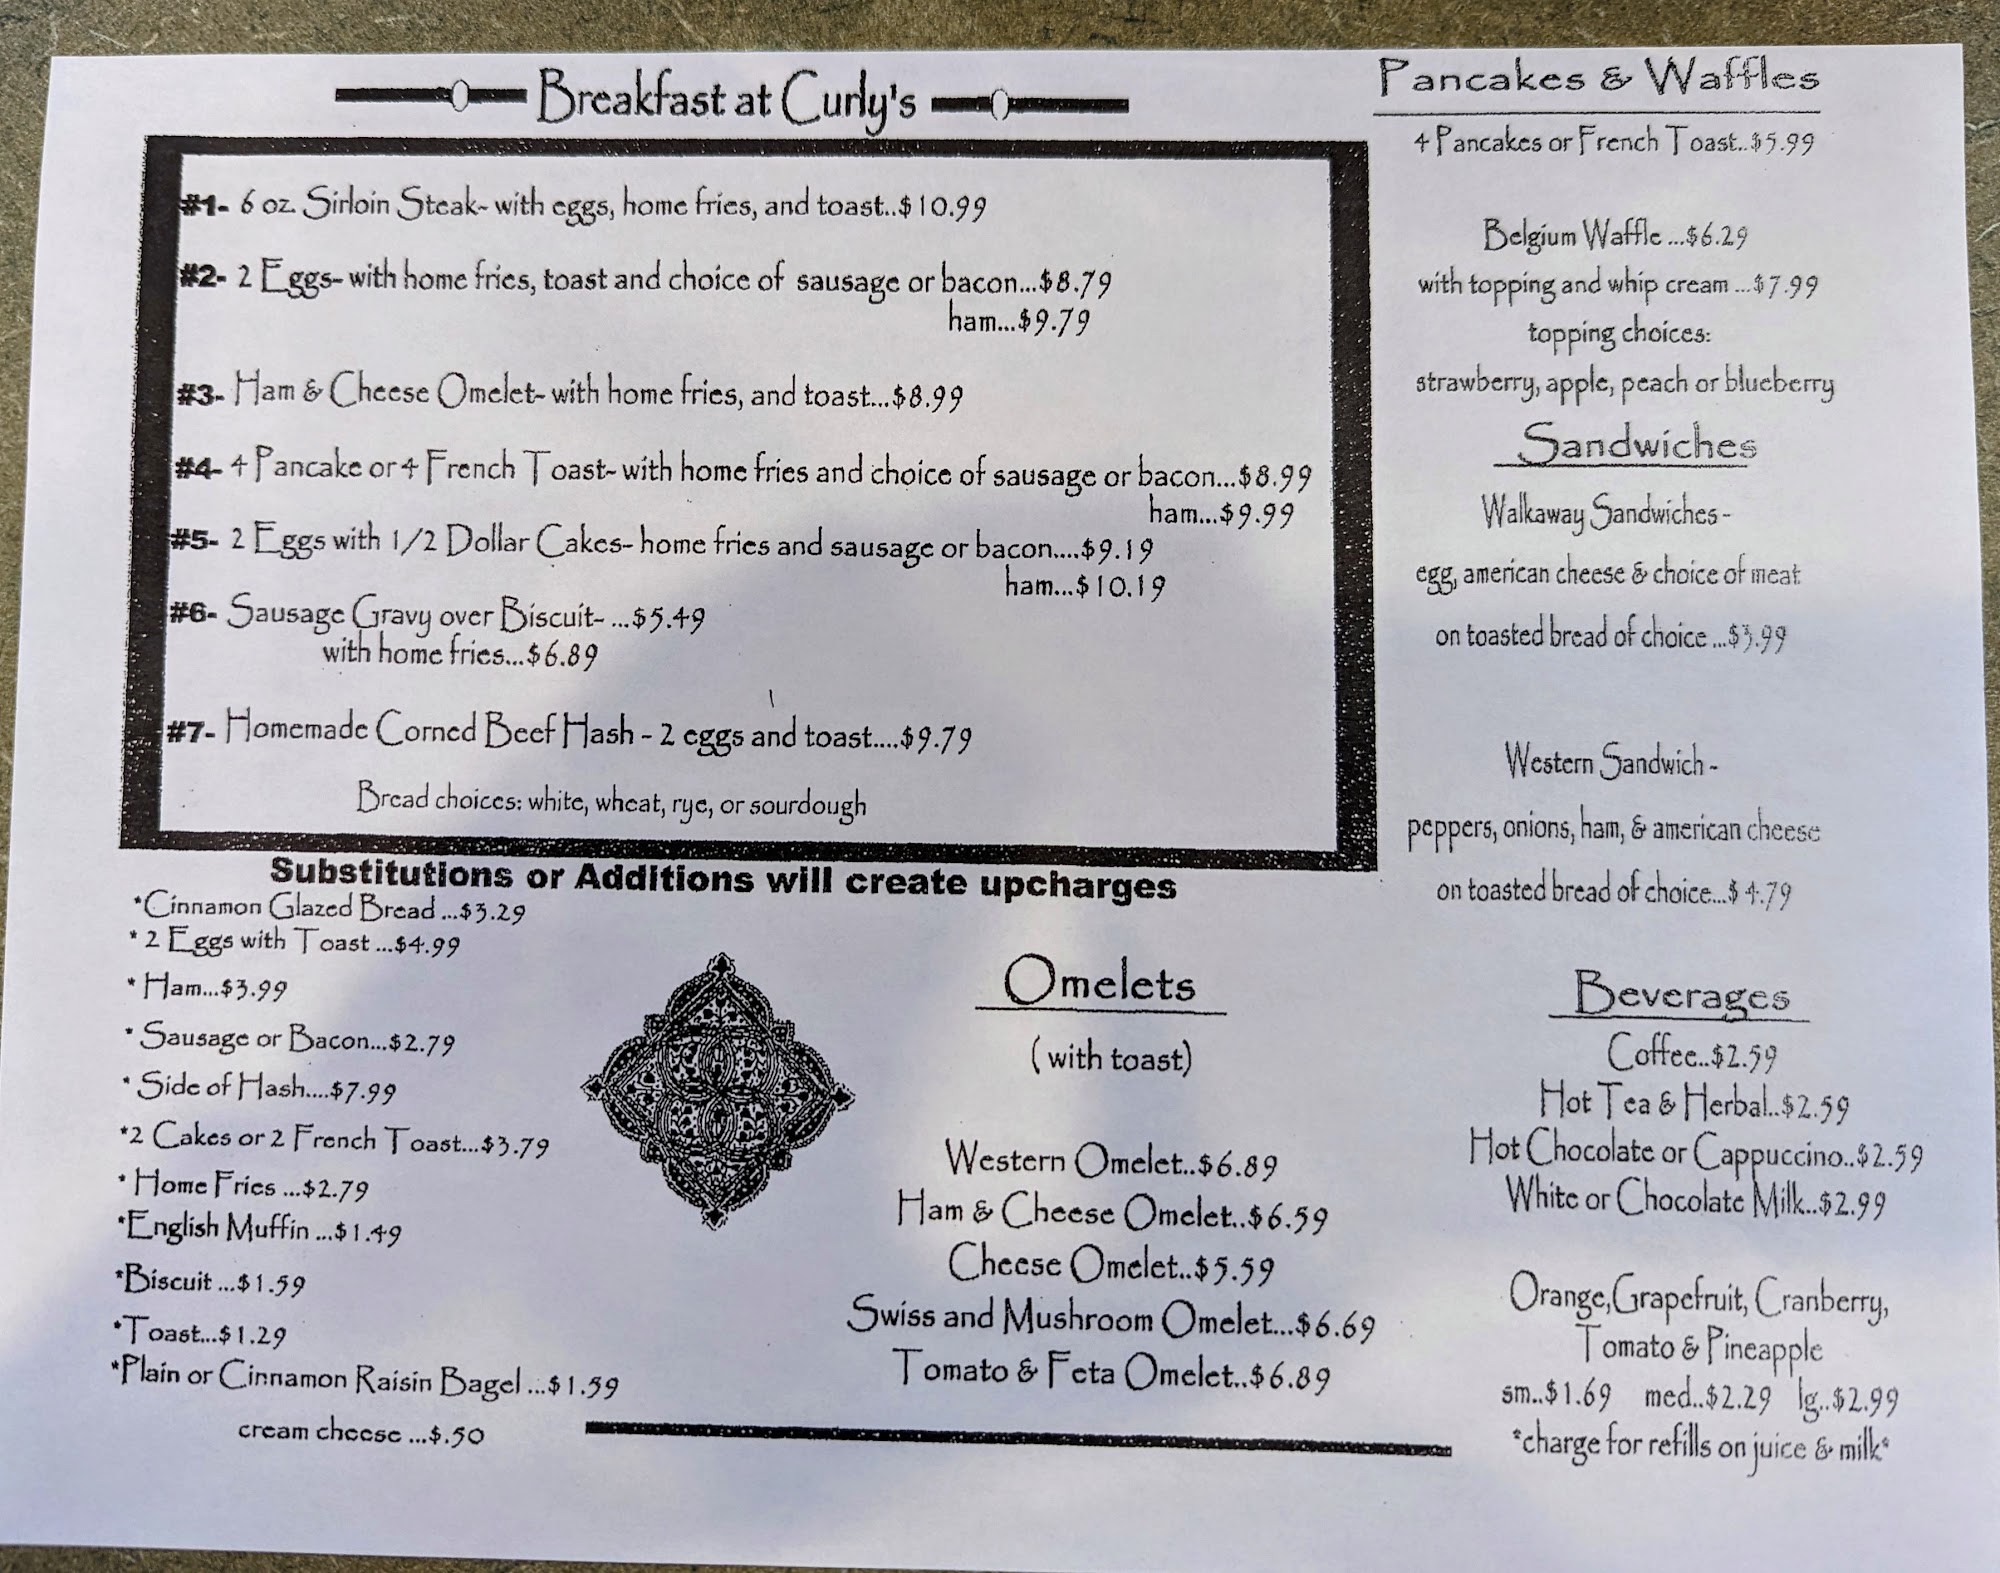 Breakfast at Curly's
#1- 6 oz. Sirloin Steak- with eggs, home fries, and toast..$10.99
#2- 2 Eggs- with home fries, toast and choice of sausage or bacon...$8.79
ham...$9.79
#3- Ham & Cheese Omelet- with home fries, and toast...$8.99
#4- 4 Pancake or 4 French Toast- with home fries and choice of sausage or bacon...$8.99
ham...$9.99
#5- 2 Eggs with 1/2 Dollar Cakes- home fries and sausage or bacon....$9.19
ham...$10.19
#6- Sausage Gravy over Biscuit- ...$5.49
with home fries...$6.89
#7- Homemade Corned Beef Hash - 2 eggs and toast....$9.79
Bread choices: white, wheat, rye, or sourdough
Substitutions or Additions will create upcharges
*Cinnamon Glazed Bread ...$3.29
* 2 Eggs with Toast ...$4.99
* Ham...$3.99
* Sausage or Bacon...$2.79
* Side of Hash....$7.99
*2 Cakes or 2 French Toast...$3.79
* Home Fries ...$2.79
*English Muffin ...$1.49
*Biscuit ...$1.59
*Toast...$1.29
*Plain or Cinnamon Raisin Bagel ...$1.59
cream cheese ...$.50
Omelets
(with toast)
Western Omelet..$6.89
Ham & Cheese Omelet..$6.59
Cheese Omelet..$5.59
Swiss and Mushroom Omelet...$6.69
Tomato & Feta Omelet..$6.89
Pancakes & Waffles
4 Pancakes or French Toast..$5.99
Belgium Waffle ...$6.29
with topping and whip cream ...$7.99
topping choices:
strawberry, apple, peach or blueberry
Sandwiches
Walkaway Sandwiches -
egg, american cheese & choice of meat
on toasted bread of choice ...$3.99
Western Sandwich -
peppers, onions, ham, & american cheese
on toasted bread of choice...$4.79
Beverages
Coffee..$2.59
Hot Tea & Herbal..$2.59
Hot Chocolate or Cappuccino..$2.59
White or Chocolate Milk..$2.99
Orange,Grapefruit, Cranberry,
Tomato & Pineapple
sm..$1.69 med..$2.29 lg..$2.99
*charge for refills on juice & milk*